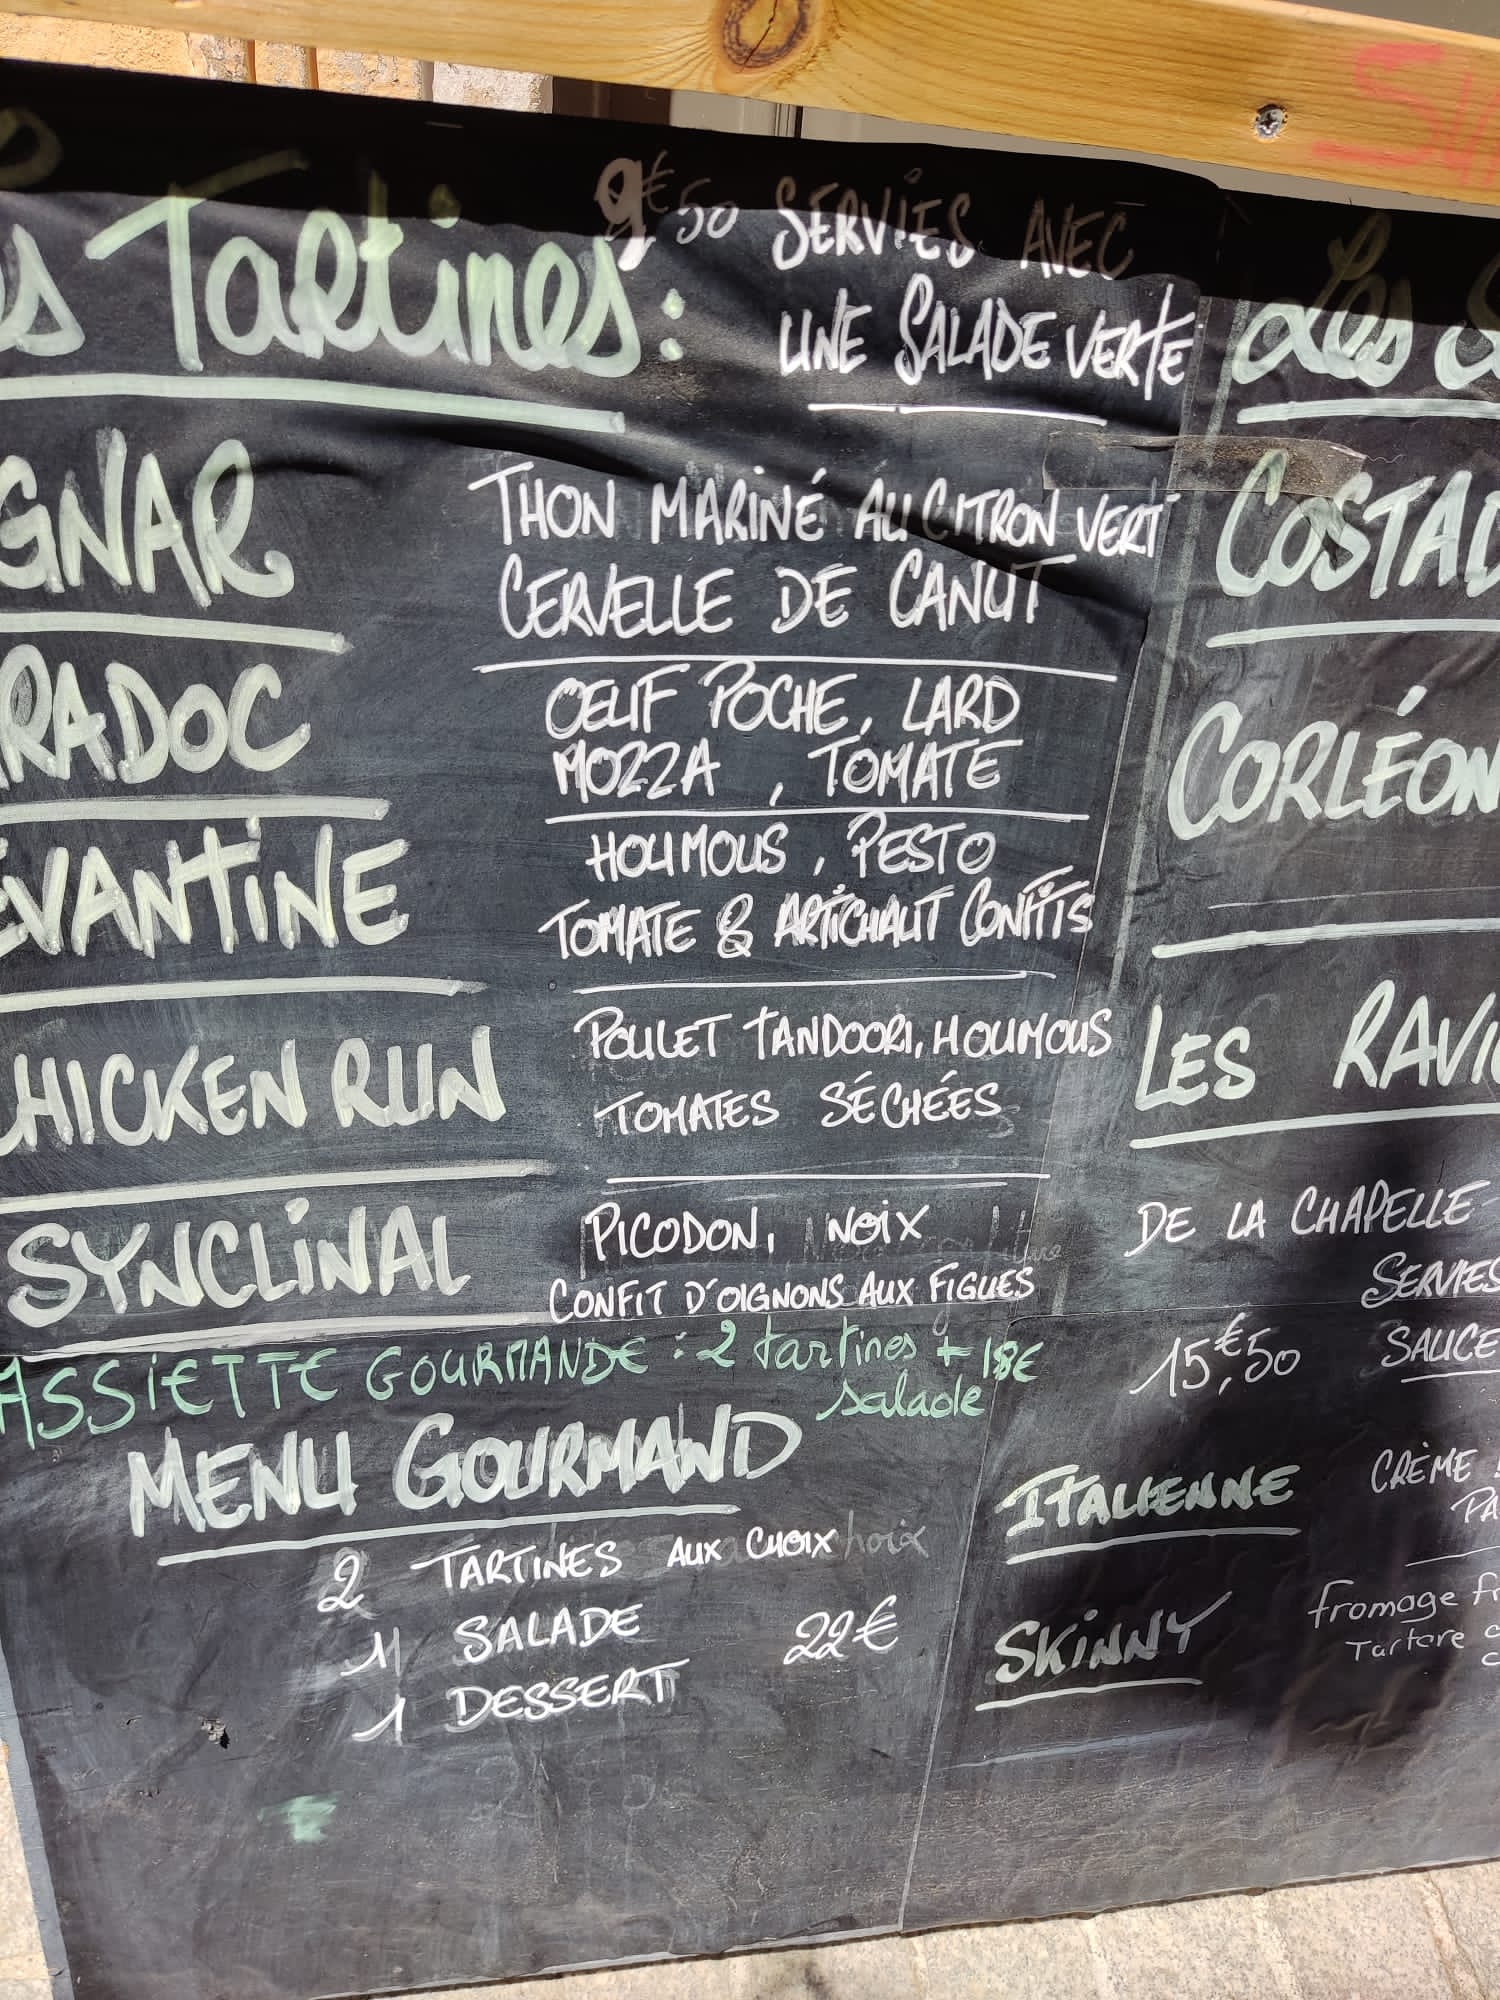 s Tartines :
9€50 SERVIES AVEC
UNE SALADE VERTE
GNAR
THON MARINÉ AU CITRON VERT
CERVELLE DE CANUT
RADOC
ŒUF POCHE, LARD
MOZZA , TOMATE
EVANTINE
HOUMOUS , PESTO
TOMATE & ARTICHAUT CONFITS
HICKEN RUN
POULET TANDOORI, HOUMOUS
TOMATES SÉCHÉES
SYNCLINAL
PICODON, NOIX
CONFIT D'OIGNONS AUX FIGUES
ASSIETTE GOURMANDE : 2 tartines + 18€
salade
MENU GOURMAND
2 TARTINES AUX CHOIX
1 SALADE 22€
1 DESSERT
Les
COSTAD
CORLÉON
LES RAVIO
DE LA CHAPELLE
SERVIES
15€,50 SAUCE
ITALIENNE CRÈME
PA
SKINNY fromage fr
Tartare